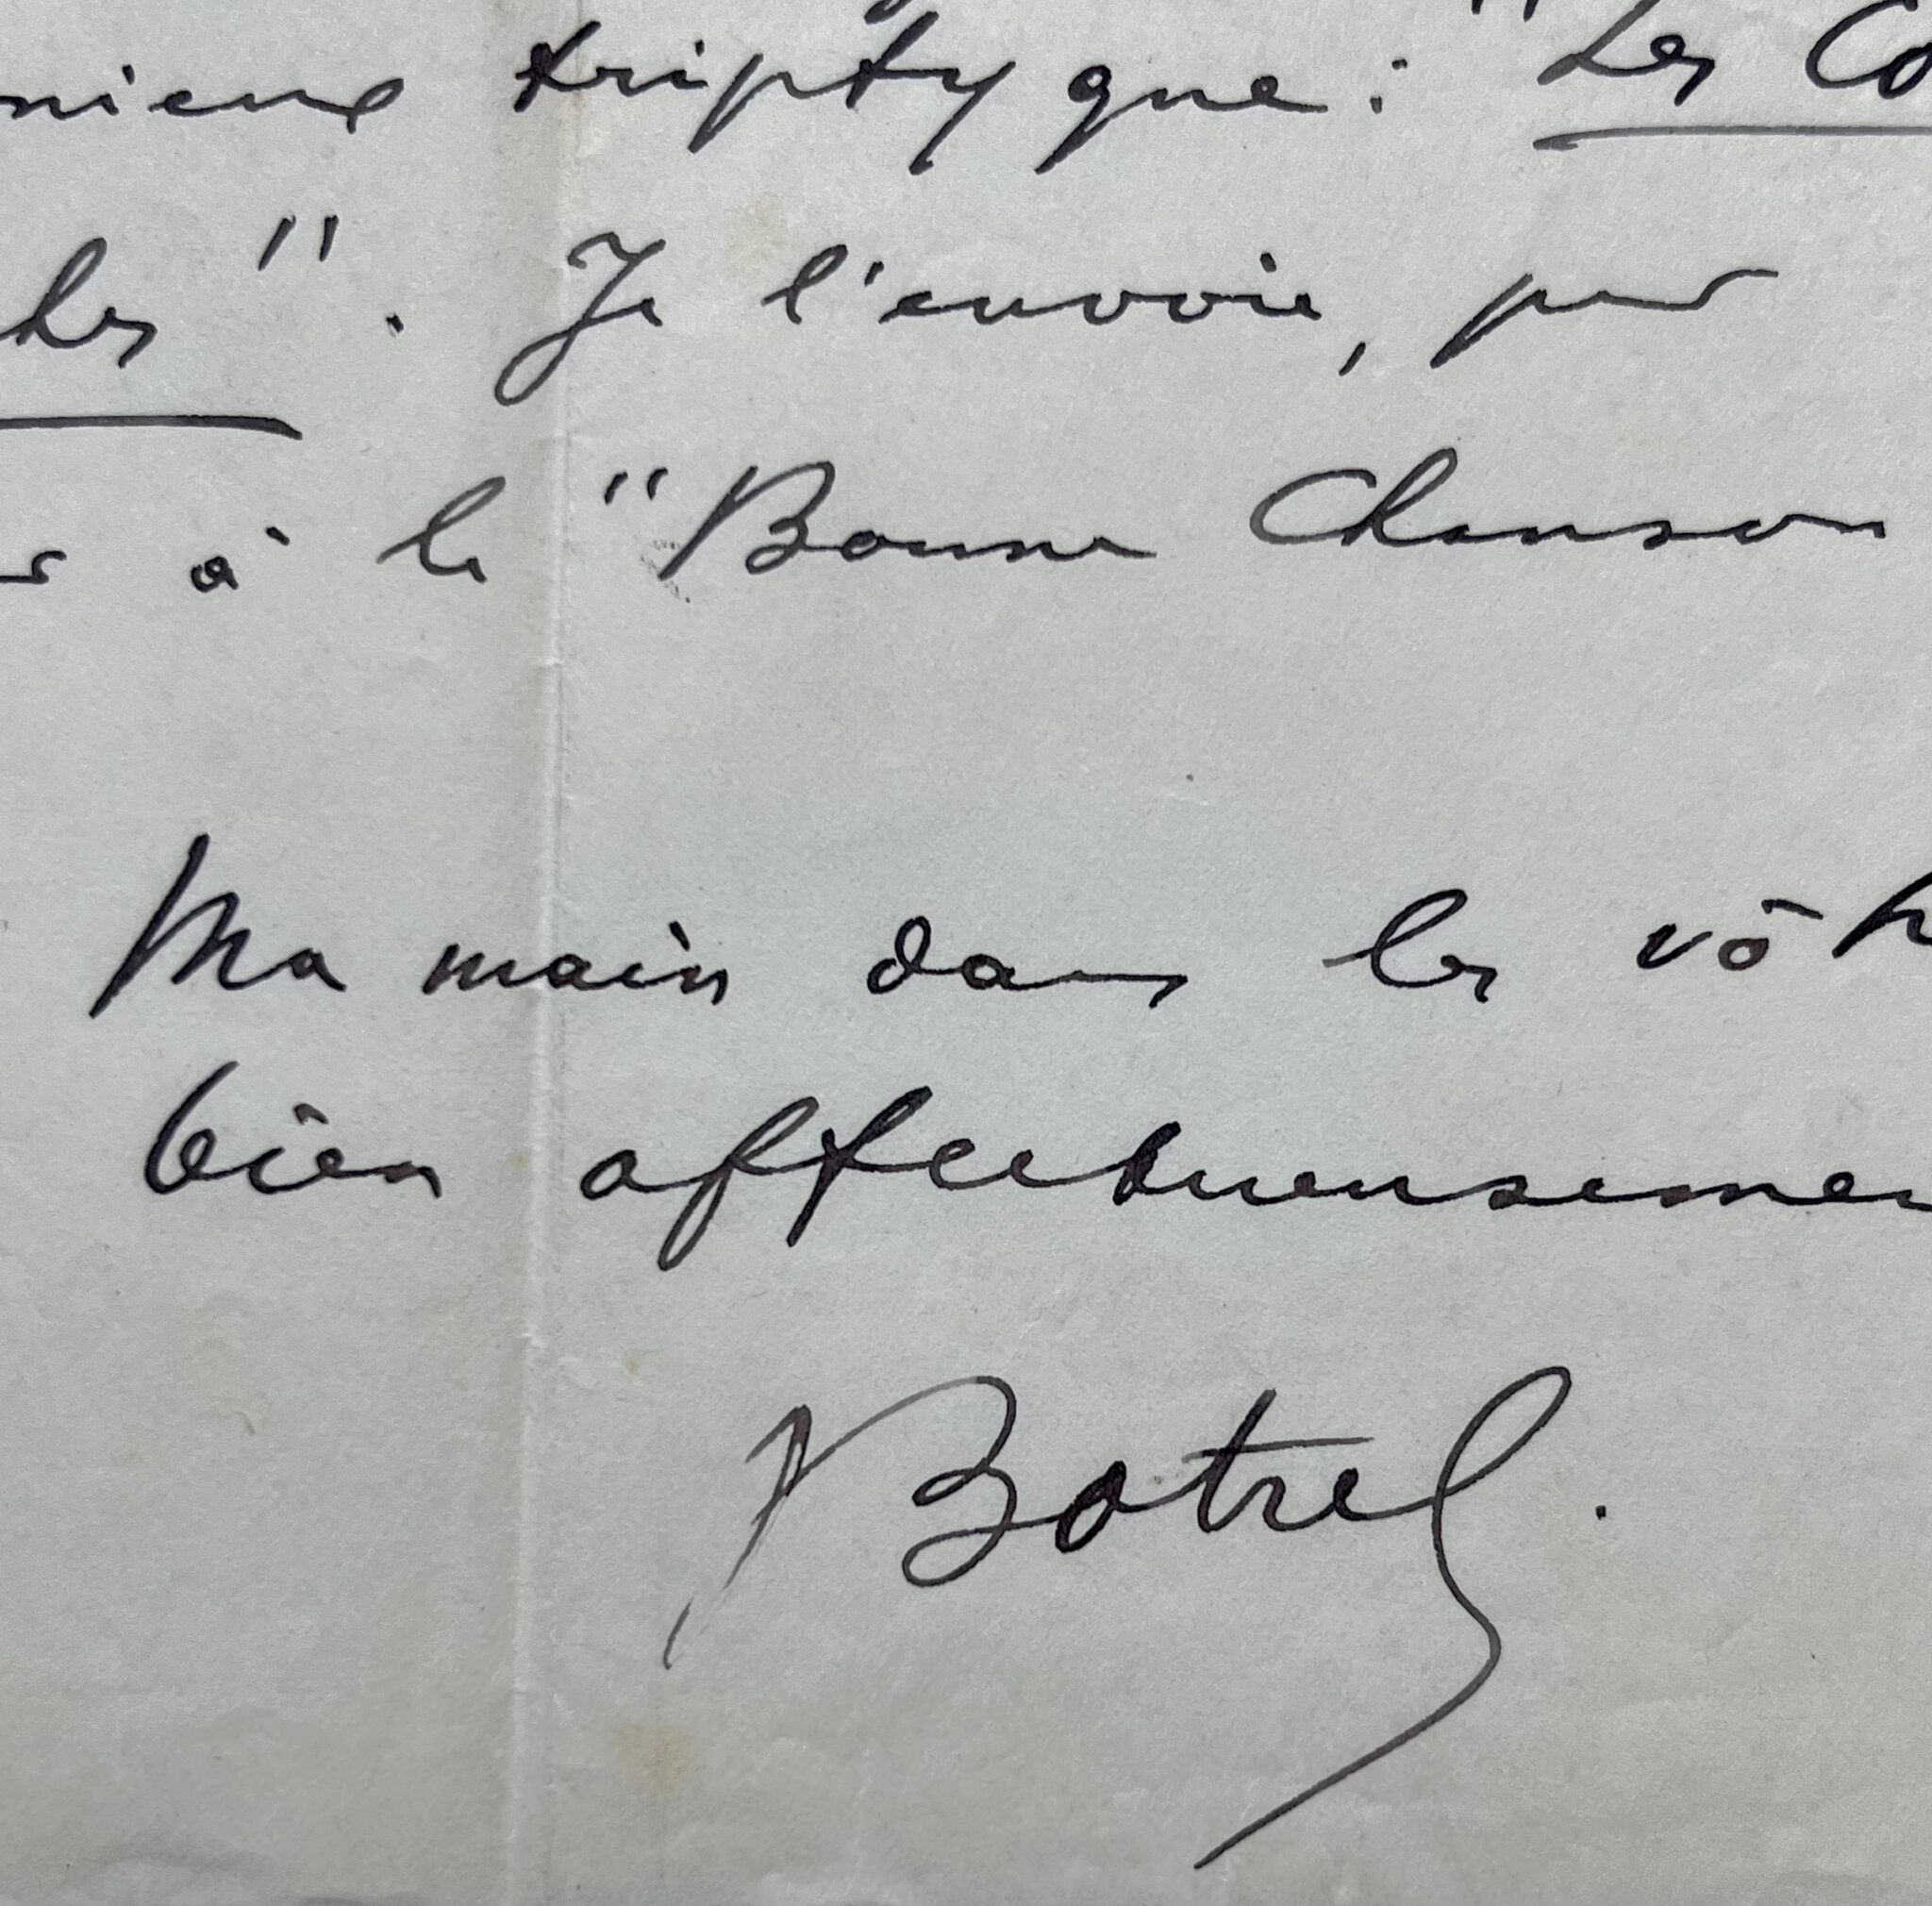 nieux triptyque : "Les Co
hes". Je l'envoie, par
r à la "Bonne Chanson
Ma main dans les vôtr
bien affectueusemen
Botrel.